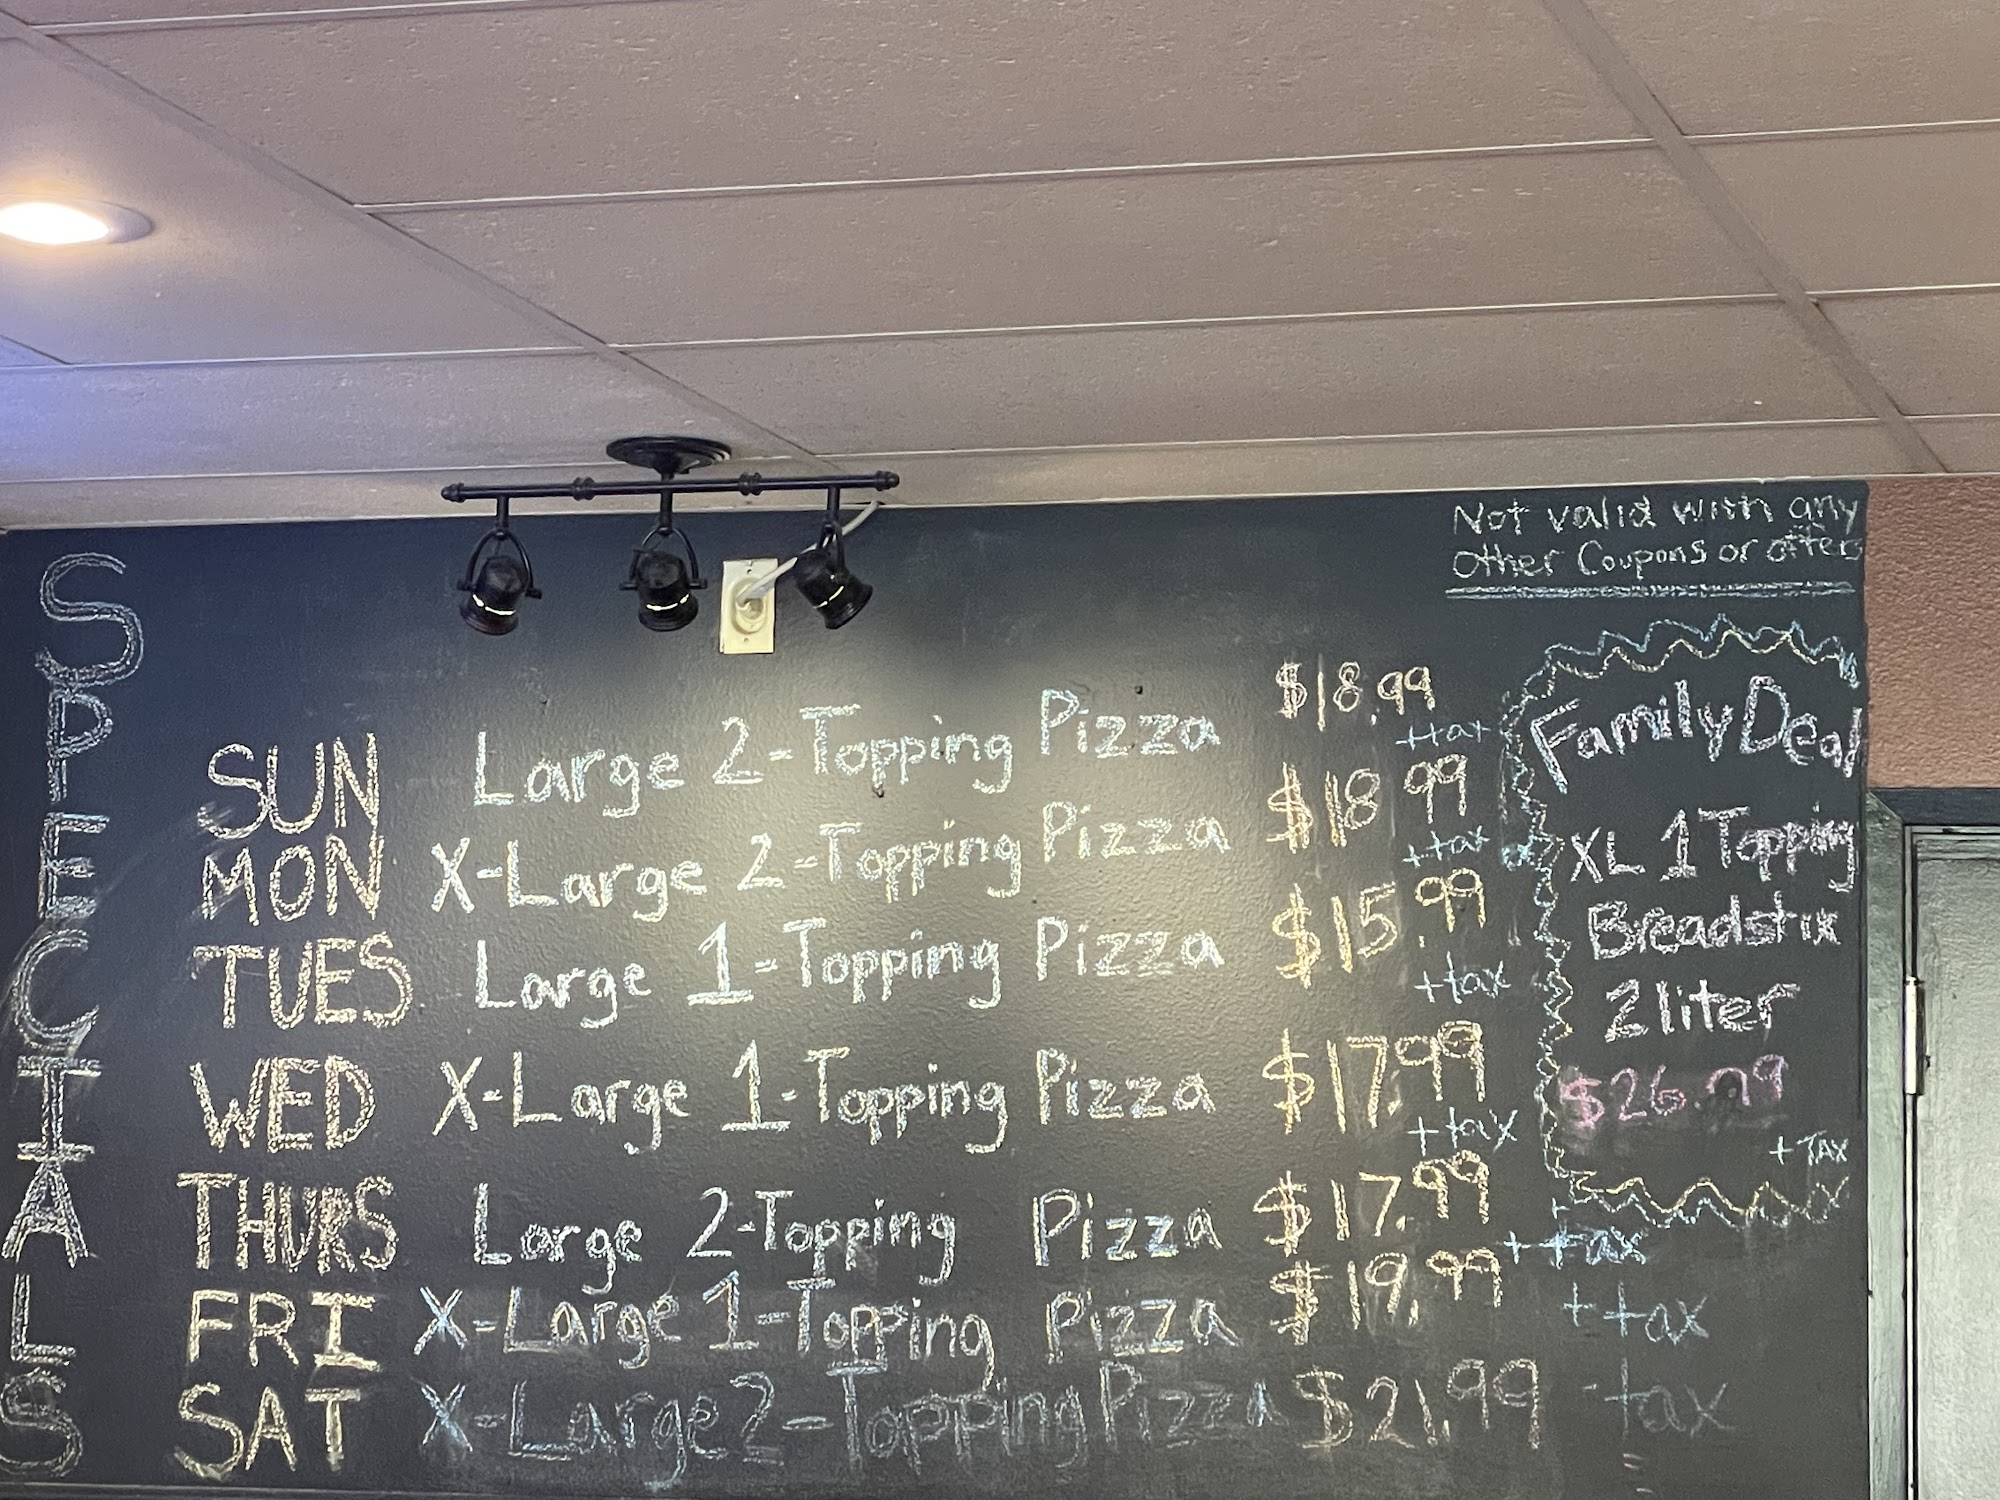 Not valid with any
other Coupons or offers
SPECIALS
SUN Large 2-Topping Pizza $18.99
+tax
MON X-Large 2-Topping Pizza $18.99
+tax
TUES Large 1-Topping Pizza $15.99
+tax
WED X-Large 1-Topping Pizza $17.99
+tax
THURS Large 2-Topping Pizza $17.99
+tax
FRI X-Large 1-Topping Pizza $19.99
+tax
SAT X-Large 2-Topping Pizza $21.99
tax
Family Deal
XL 1 Topping
Breadstix
2 liter
$26.99
+TAX